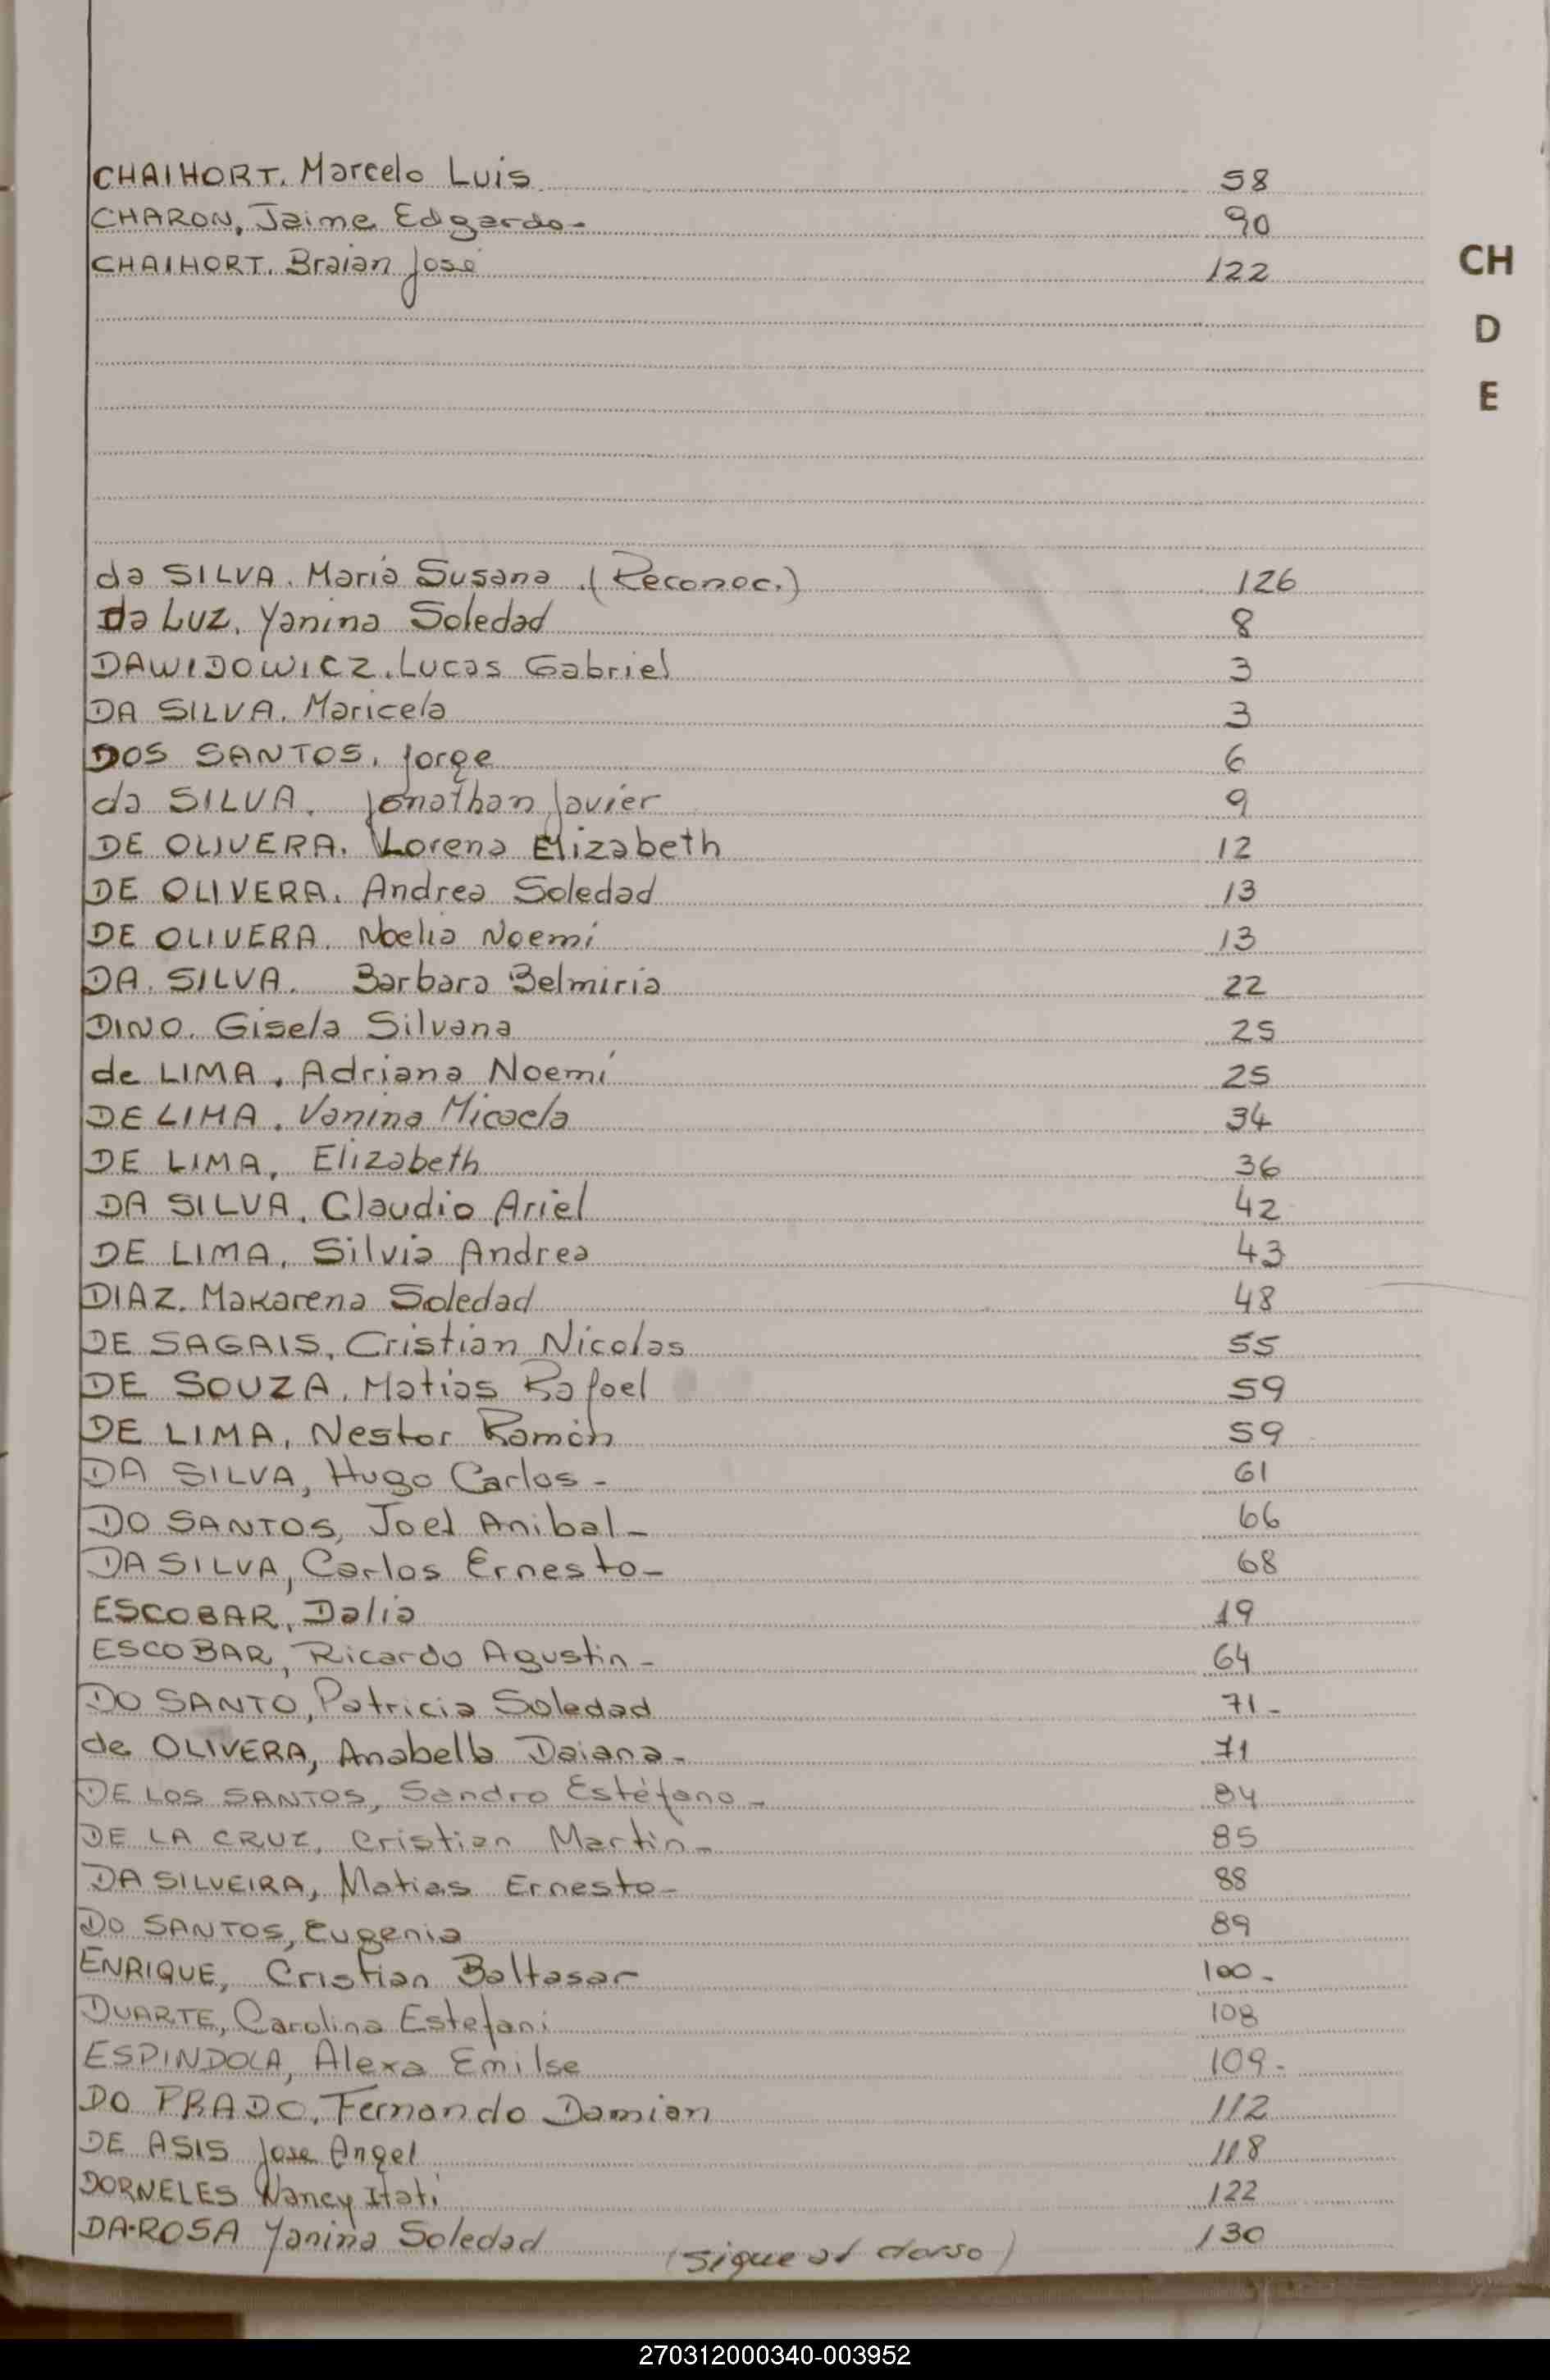 CHAIHORT. Marcelo Luis 58
CHARON, Jaime Edgardo- 90
CHAIHORT. Braian José 122
CH
D
E
da SILVA. Maria Susana. (Reconoc.) 126
da LUZ. Yanina Soledad 8
DAWIDOWICZ. Lucas Gabriel 3
DA SILVA. Maricela 3
DOS SANTOS, Jorge 6
da SILVA. Jonathan Javier 9
DE OLIVERA. Lorena Elizabeth 12
DE OLIVERA. Andrea Soledad 13
DE OLIVERA. Noelia Noemí 13
DA. SILVA. Barbara Belmiria 22
DINO. Gisela Silvana 25
de LIMA, Adriana Noemí 25
DE LIMA. Vanina Micaela 34
DE LIMA, Elizabeth 36
DA SILVA, Claudio Ariel 42
DE LIMA, Silvia Andrea 43
DIAZ. Makarena Soledad 48
DE SAGAIS, Cristian Nicolas 55
DE SOUZA. Matias Rafael 59
DE LIMA, Nestor Ramón 59
DA SILVA, Hugo Carlos- 61
DO SANTOS, Joel Anibal- 66
DA SILVA, Carlos Ernesto- 68
ESCOBAR, Dalia 19
ESCOBAR, Ricardo Agustin- 64
DO SANTO, Patricia Soledad 71-
de OLIVERA, Anabella Daiana- 71
DE LOS SANTOS, Sandro Estéfano- 84
DE LA CRUZ, Cristian Martin- 85
DA SILVEIRA, Matias Ernesto- 88
DO SANTOS, Eugenia 89
ENRIQUE, Cristian Baltasar 100-
DUARTE, Carolina Estefani 108
ESPINDOLA, Alexa Emilse 109-
DO PRADO, Fernando Damian 112
DE ASIS Jose Angel 118
DORNELES Nancy Itatí 122
DA-ROSA Yanina Soledad 130
(sigue al dorso)
270312000340-003952